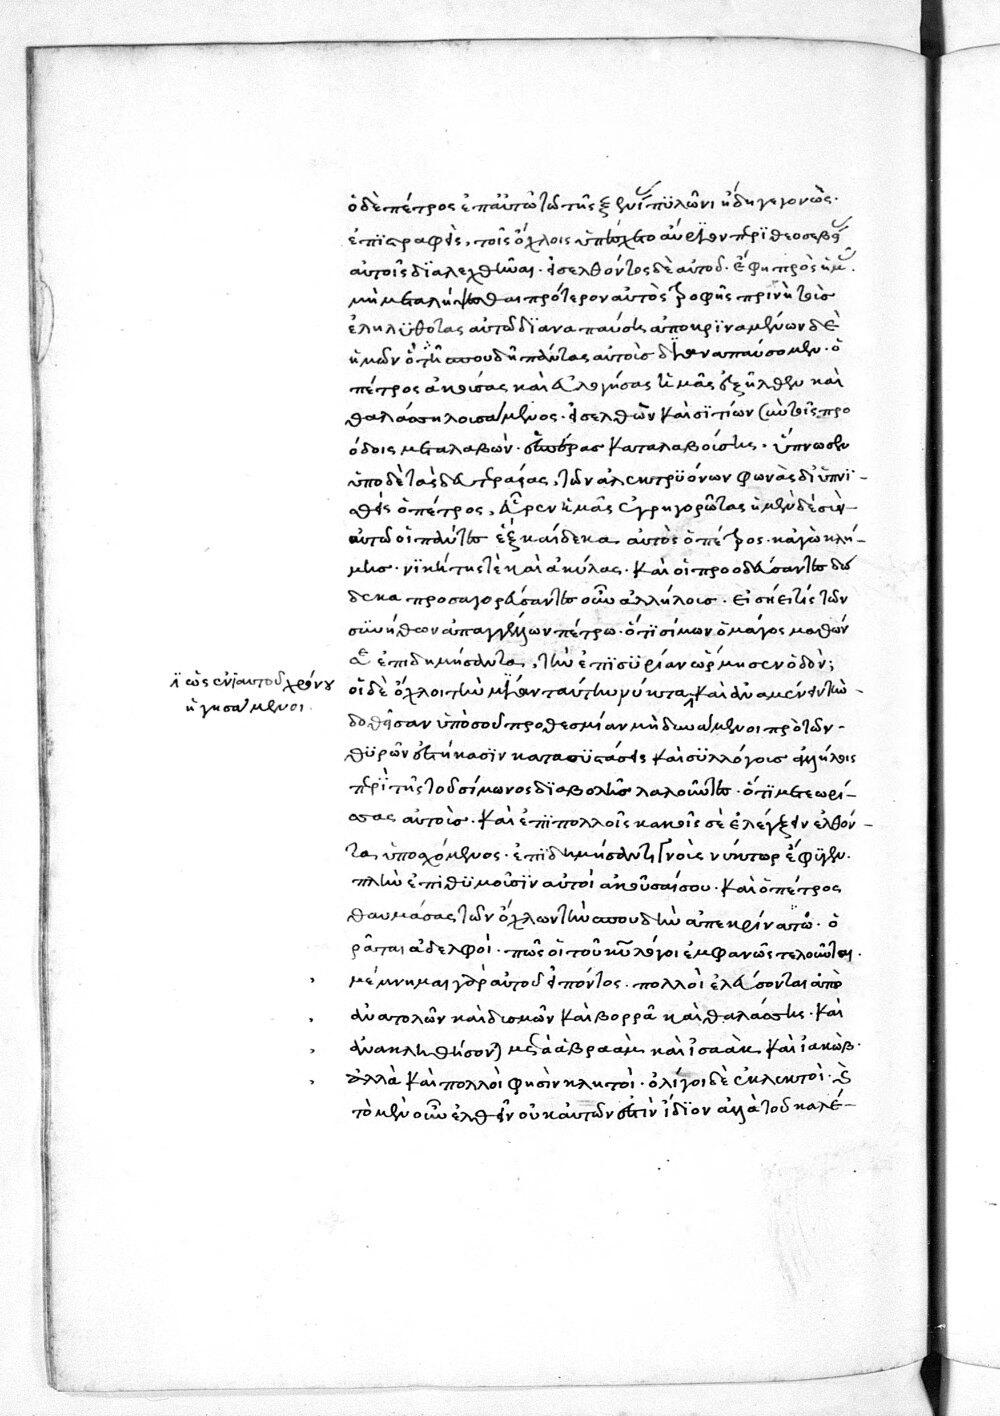 ὁ δὲ πέτρος ἐπ αὐτῶ τῶ τῆς ξενίας πϋλῶνι ἤδη γεγονὼς·
ἐπϊστραφεὶς, τοῖς ὄχλοις ὑπέσχετο αὔριον περὶ θεοσεβείας
αὐτοῖς διαλεχθῆναι· εἰσελθόντος δὲ αὐτοῦ· ἔφη πρὸς ἡμᾶς·
μὴ μεταλήψεσθαι πρότερον αὐτὸς τροφῆς πρινὴ τοὺς
ἐληλϋθότας αὐτῶ διαναπαύσει, ἀποκριναμένων δὲ
ἡμῶν ὅτι τῆ σπουδῆ πάντας αὐτοὺς διαναπαύσομεν· ὁ
πέτρος ἀκούσας καὶ εὐλογήσας ἡμᾶς ἐξῆλθεν καὶ
θαλάσση λουσάμενος· εἰσελθὼν καὶ σϊτίων σὺν τοῖς προ
όδοις μεταλαβὼν· ἑσπέρας καταλαβούσης· ὕπνωσεν
ὑπὸ δὲ τὰς δευτεραίας, τῶν ἀλεκτρϋόνων φωνὰς διϋπνι-
σθεὶς ὁ πέτρος, εὗρεν ἡμᾶς ἐγρηγορῶτας ἦμεν δὲ σὺν-
αὐτῶ οἱ πάντες ἑξκαίδεκα, αὐτὸς ὁ πέτρος· κἀγὼ κλή-
μης· νικήτης τὲ καὶ ἀκύλας· καὶ οἱ προοδεύσαντες δώ
δεκα προσαγορεύσαντες οὖν ἀλλήλους· εἰσήει τίς τῶν
σϋνήθων ἀπαγγέλλων πέτρω· ὅτι σίμων ὁ μάγος μαθών
σε ἐπιδημήσαντα, τὴν ἐπὶ σϋρίαν ὥρμησεν ὁδόν;
οἱ δὲ ὄχλοι τὴν μίαν ταύτην νύκτα, καὶ ἀναμένειν τὴν-
δοθεῖσαν ὑπὸ σοῦ προθεσμίαν μὴ δυνάμενοι πρὸ τῶν-
θϋρῶν ἑστήκασϊν κατασϋστάσεις καὶ σϋλλόγους ἀλλήλοις
περὶ τῆς τοῦ σίμωνος διαβολῆς λαλοῦντες· ὅτι μετεωρί-
σας αὐτοὺς· καὶ ἐπὶ πολλοῖς κακοῖς σὲ ἐλέγξειν ἐλθόν-
τα, ὑποσχόμενος· ἐπιδημήσαντί γνοὺς νύκτωρ ἔφϋγεν·
πλὴν ἐπιθϋμοῦσιν αὐτοὶ ἀκοῦσαί σου· καὶ ὁ πέτρος
θαυμάσας τῶν ὄχλων τὴν σπουδὴν ἀπεκρίνατο· ὁ
ρᾶται ἀδελφοί· πῶς οἱ τοῦ κῡ λόγοι ἐμφανῶς τελοῦνται·
μέμνημαι γὰρ αὐτοῦ εἰπόντος· πολλοὶ ἐλεύσονται ἀπὸ
ἀνατολῶν καὶ δυσμῶν καὶ βορρᾶ καὶ θαλάσσης· καὶ
ἀνακληθήσονται μετὰ ἀβραὰμ καὶ ἰσαὰκ καὶ ἰακὼβ·
ἀλλὰ καὶ πολλοὶ φησὶν κλητοὶ· ὀλίγοι δὲ ἐκλεκτοὶ·
τὸ μὲν οὖν ἐλθεῖν οὐκ αὐτῶν ἐστὶν ἴδιον ἀλλὰ τοῦ καλέ-
ἴσως ἐνϊαυτοῦ χρόνου
ἡγησάμενοι.